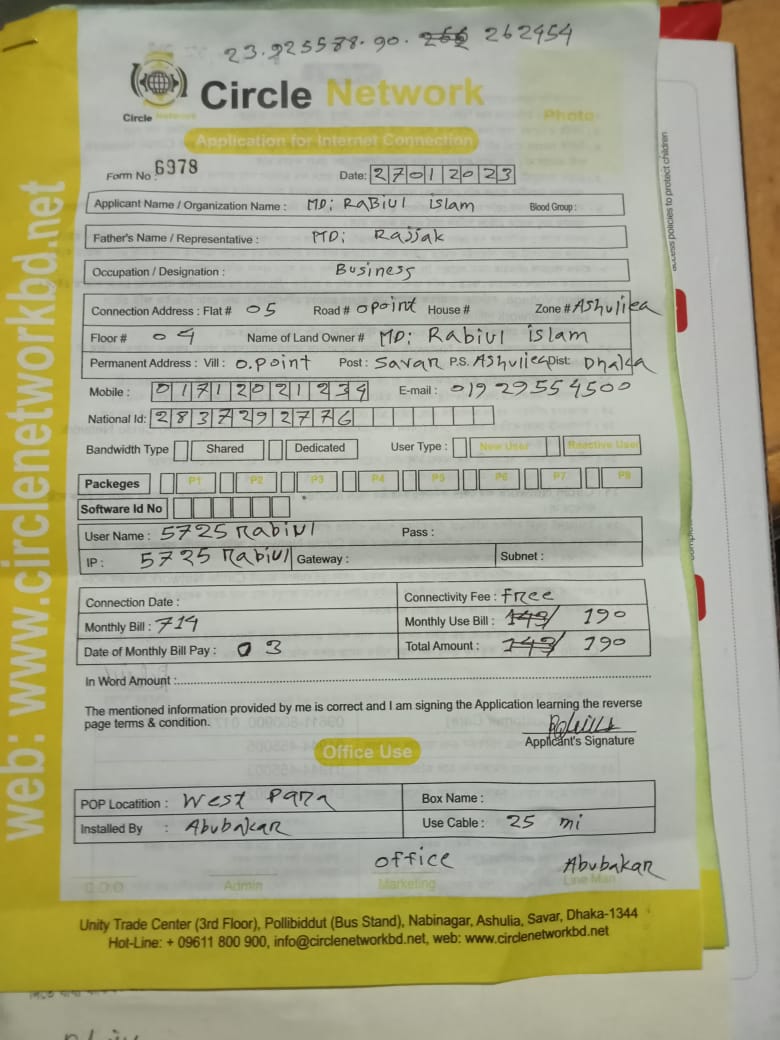 23.925578.90. 262454
Circle Network
Circle Network
Photo
Application for Internet Connection
Form No : 6978 Date: 27012023
Applicant Name / Organization Name : MD: RaBiul islam Blood Group :
Father's Name / Representative : MD: Rajjak
Occupation / Designation : Business
Connection Address : Flat # 05 Road # opoint House # Zone # Ashuliea
Floor # 04 Name of Land Owner # MD: Rabiul islam
Permanent Address : Vill : o.point Post : Savar P.S. Ashuliea Dist: Dhaka
Mobile : 01712021234 E-mail : 01929554500
National Id: 2837292776
Bandwidth Type Shared Dedicated User Type : New User Reactive User
Packeges P1 P2 P3 P4 P5 P6 P7 P8
Software Id No
User Name : 5725 Rabiul Pass :
IP : 5725 Rabiul Gateway : Subnet :
Connection Date : Connectivity Fee : Free
Monthly Bill : 714 Monthly Use Bill : 143/ 190
Date of Monthly Bill Pay : 03 Total Amount : 143/ 190
In Word Amount :
The mentioned information provided by me is correct and I am signing the Application learning the reverse
page terms & condition.
Applicant's Signature
Office Use
POP Locatition : West para Box Name :
Installed By : Abubakar Use Cable : 25 mi
office Abubakar
C.O.O Admin Marketing Line Man
Unity Trade Center (3rd Floor), Pollibiddut (Bus Stand), Nabinagar, Ashulia, Savar, Dhaka-1344
Hot-Line: + 09611 800 900, info@circlenetworkbd.net, web: www.circlenetworkbd.net
web: www.circlenetworkbd.net
access policies to protect children